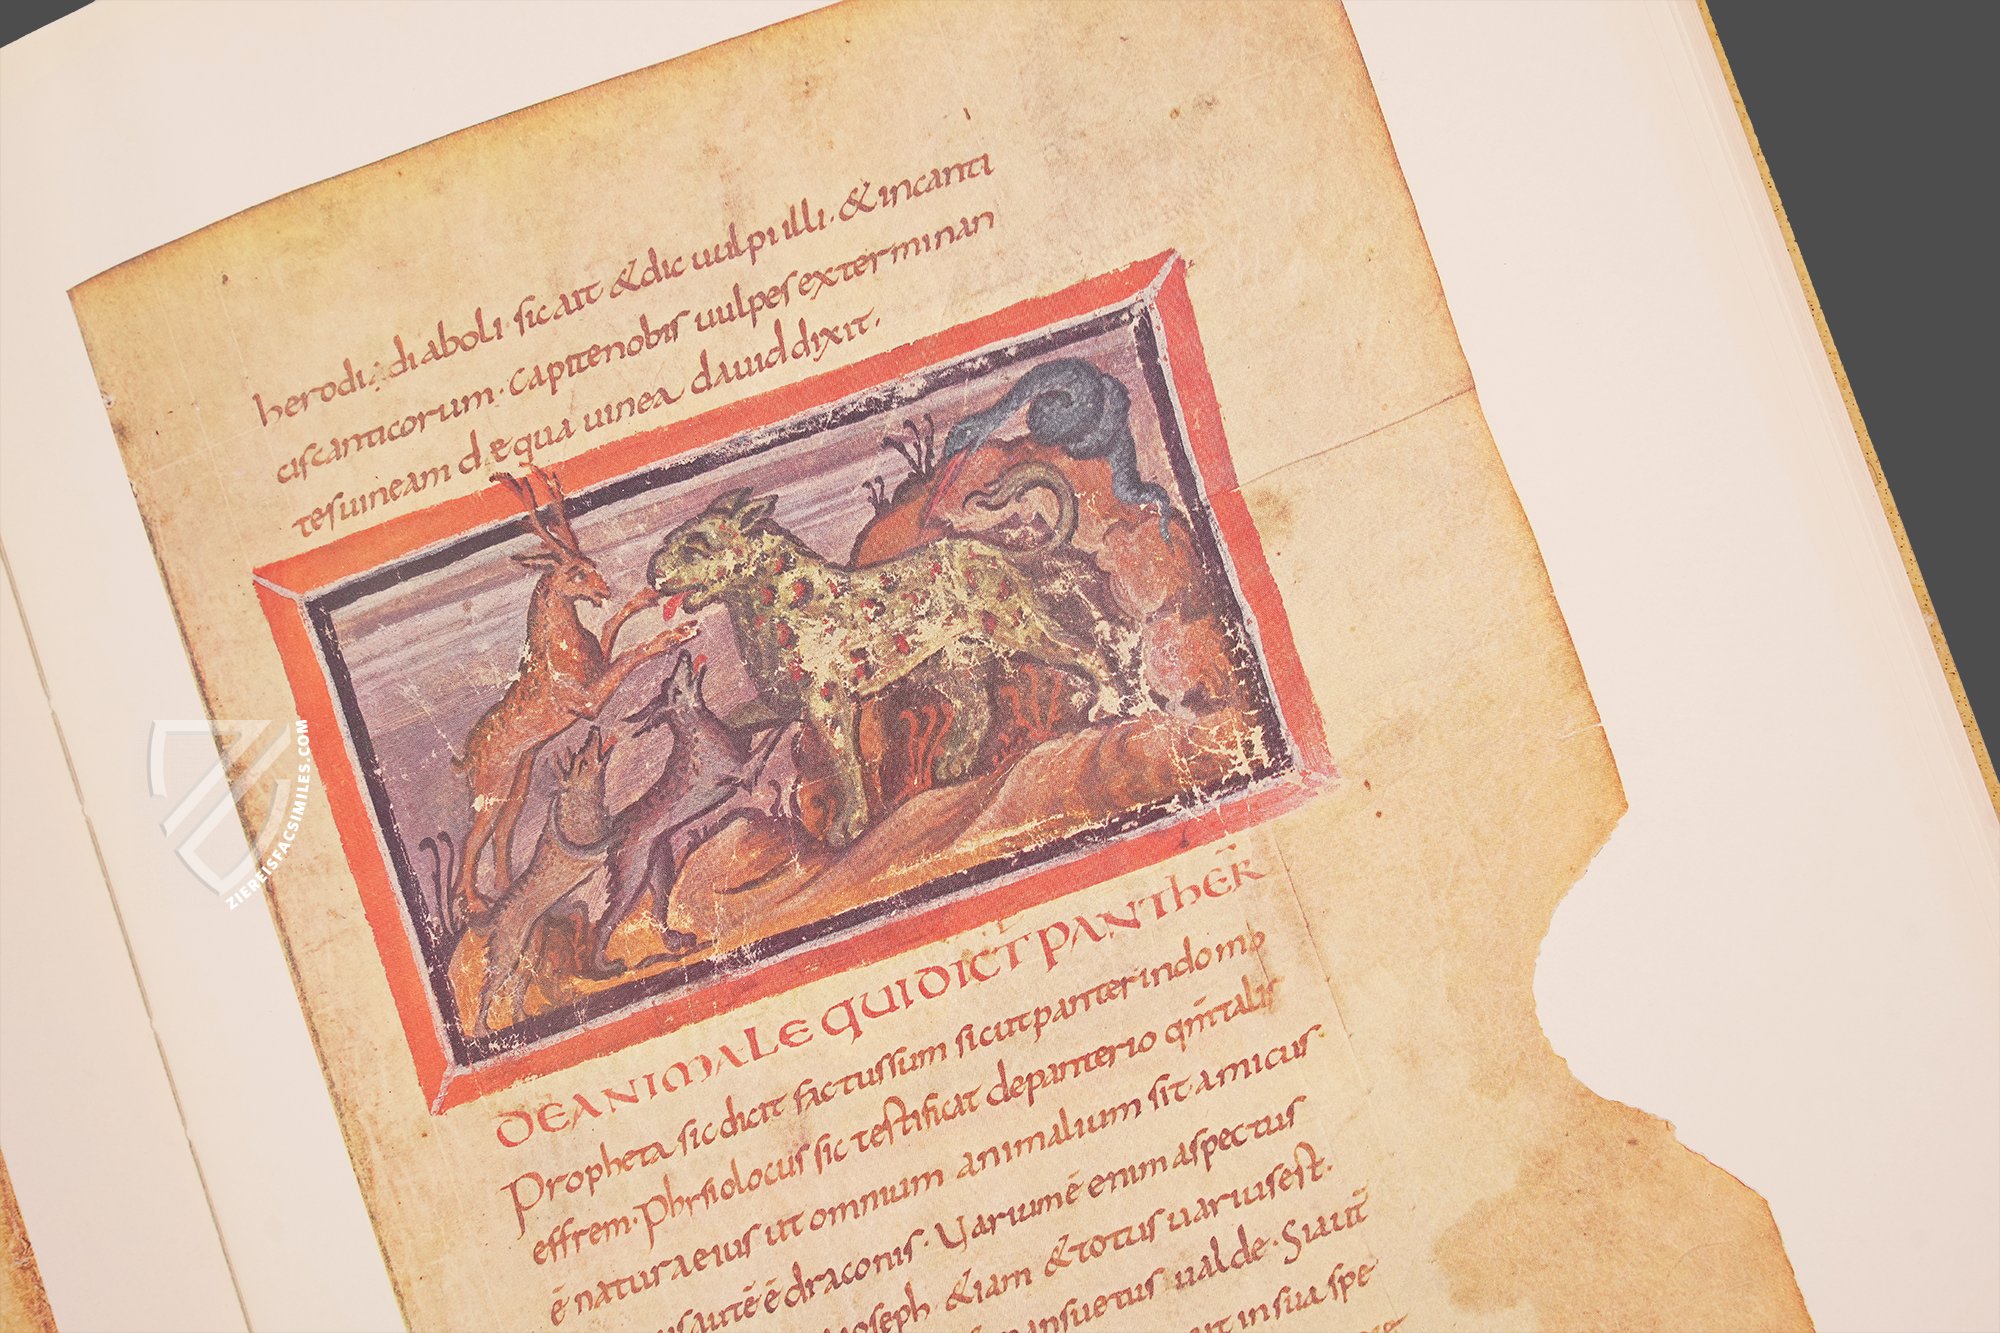 herodi; diaboli· sicait &dic uulpi illi· & in canti
cis canticorum· capite nobis uulpes exterminan
tes uineam de qua uinea dauid dixit·
DE ANIMALE QUI DICT PANTHER̄
Propheta sic dicit factus sum sicut panter in domo
effrem· Phisiolocus sic testificat de panterio qm̄ talis
ē natura eius ut omnium animalium sit amicus·
autē ē draconis· Uarium ē enim aspectus
ioseph & iam & totus uarius est·
mansuetus ualde· Si aut̄
in sua spe
ZIEREISFACSIMILES.COM